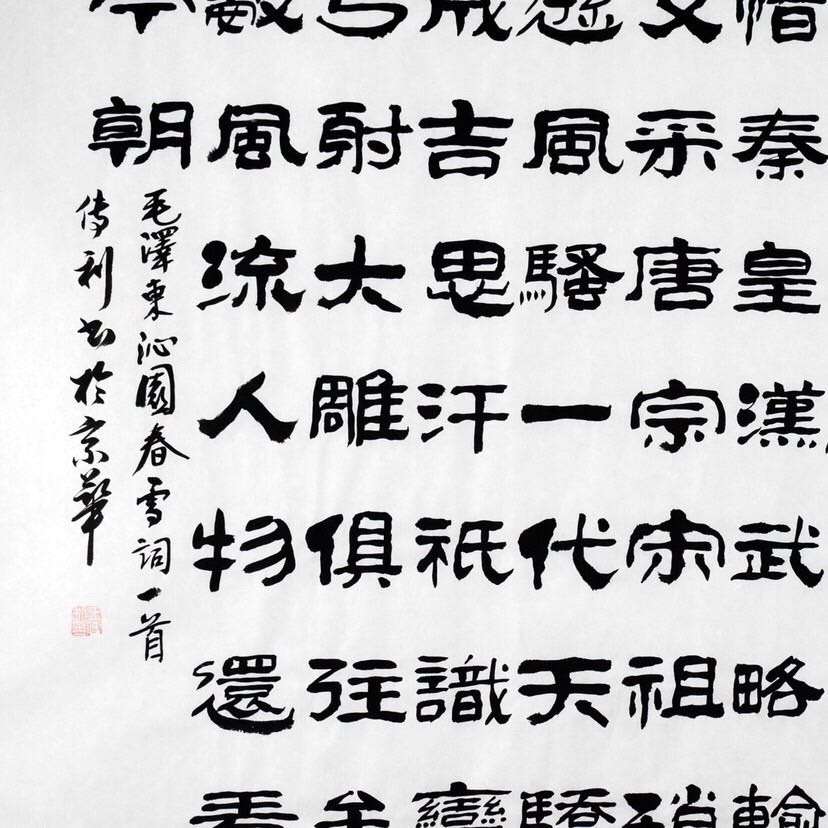 惜秦皇漢武略輸
文采唐宗宋祖稍
遜風騷一代天驕
成吉思汗祇識彎
弓射大雕俱往矣
數風流人物還看
今朝
毛澤東沁園春雪詞一首
傳利书於京華